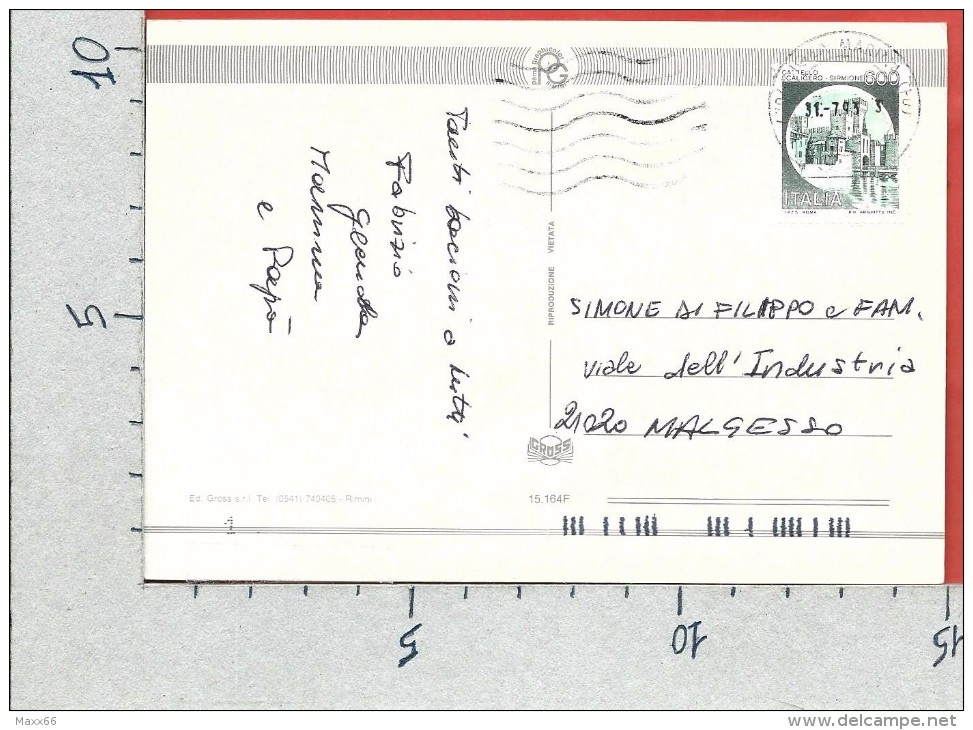 Tanti bacioni a tutti
Fabrizio
Glenda
Mamma
e Papà
CASTELLO
SCALIGERO - SIRMIONE 600
31.-7.93
ITALIA
SIMONE DI FILIPPO e FAM.
viale dell'Industria
21020 MALGESSO
RIPRODUZIONE VIETATA
GROSS
Ed. Gross s.r.l. Tel. (0541) 740405 - Rimini
15.164F
1
10
5
5
10
15
Maxx66
www.delcampe.net